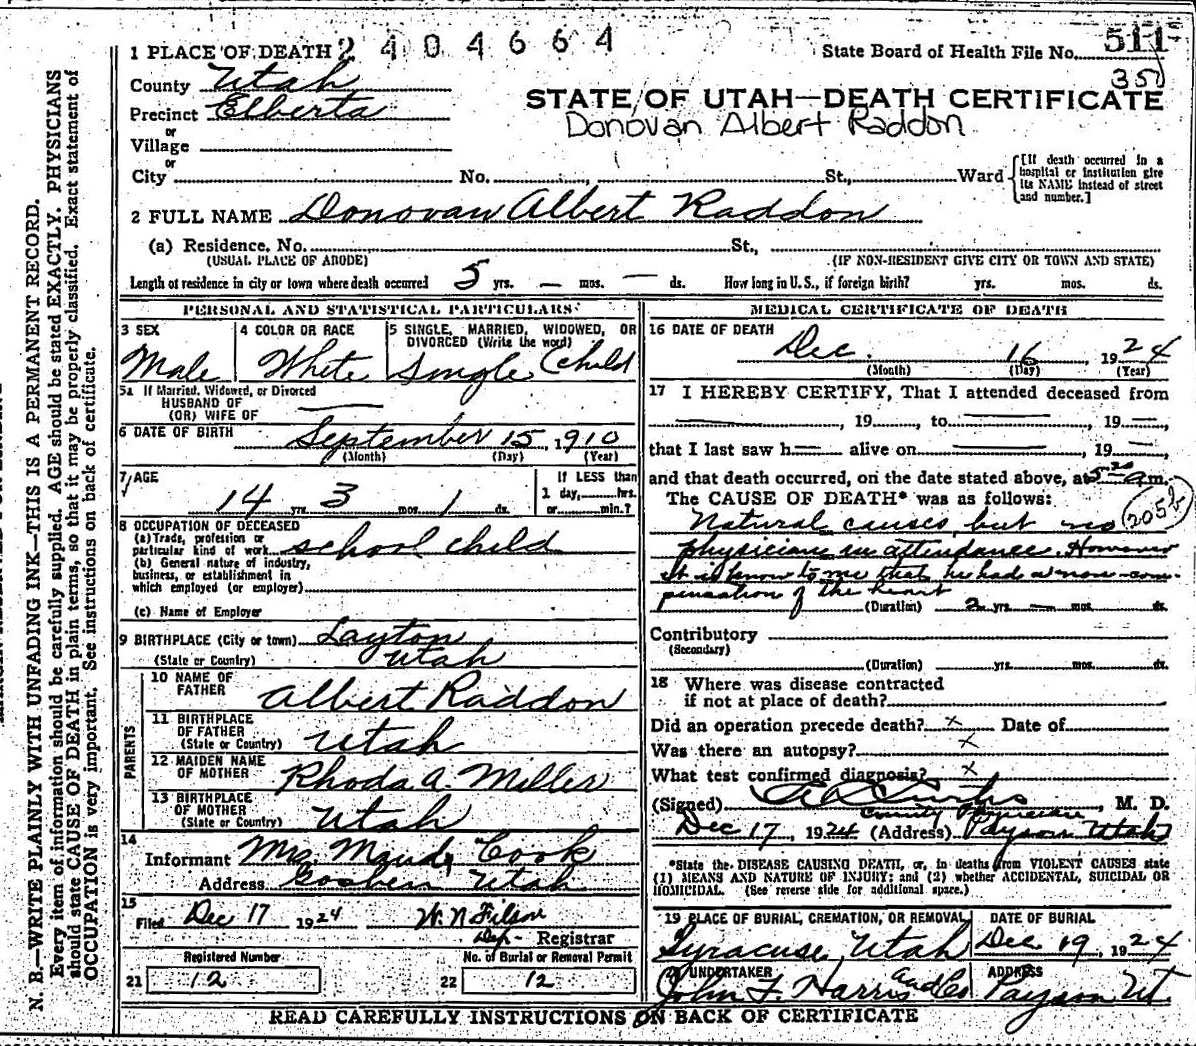 1 PLACE OF DEATH 2404664
State Board of Health File No. 511
35
County Utah
Precinct Elberta
STATE OF UTAH—DEATH CERTIFICATE
Donovan Albert Raddon
or
Village
or
City No. , St., Ward
[If death occurred in a hospital or institution give its NAME instead of street and number.]
2 FULL NAME Donovan Albert Raddon
(a) Residence. No. St.,
(USUAL PLACE OF ABODE) (IF NON-RESIDENT GIVE CITY OR TOWN AND STATE)
Length of residence in city or town where death occurred 5 yrs. — mos. — ds. How long in U. S., if foreign birth? yrs. mos. ds.
PERSONAL AND STATISTICAL PARTICULARS
3 SEX
Male
4 COLOR OR RACE
White
5 SINGLE, MARRIED, WIDOWED, OR DIVORCED (Write the word)
Single Child
5a If Married, Widowed, or Divorced
HUSBAND OF
(OR) WIFE OF —
6 DATE OF BIRTH September 15, 1910
(Month) (Day) (Year)
7 AGE
14 yrs. 3 mos. 1 ds.
If LESS than
1 day, hrs.
or min.?
8 OCCUPATION OF DECEASED
(a) Trade, profession or
particular kind of work school child
(b) General nature of industry,
business, or establishment in
which employed (or employer)
(c) Name of Employer
9 BIRTHPLACE (City or town) Layton
(State or Country) Utah
PARENTS
10 NAME OF
FATHER Albert Raddon
11 BIRTHPLACE
OF FATHER
(State or Country) Utah
12 MAIDEN NAME
OF MOTHER Rhoda A. Miller
13 BIRTHPLACE
OF MOTHER
(State or Country) Utah
14
Informant Mrs Maude Cook
Address Goshen Utah
15
Filed Dec 17 1924 W. N. Filson
Dep- Registrar
Registered Number
21 12
No. of Burial or Removal Permit
22 12
MEDICAL CERTIFICATE OF DEATH
16 DATE OF DEATH
Dec. 16 1924
(Month) (Day) (Year)
17 I HEREBY CERTIFY, That I attended deceased from
—, 19 —, to —, 19 —,
that I last saw h— alive on —, 19 —,
and that death occurred, on the date stated above, at 5 20 a m.
The CAUSE OF DEATH* was as follows:
Natural causes, but no 205b
physicians in attendance. However
it is know to me that he had a non-com-
pensation of the heart
(Duration) 2 yrs. — mos. ds.
Contributory
(Secondary)
(Duration) yrs. mos. ds.
18 Where was disease contracted
if not at place of death?
Did an operation precede death? x Date of
Was there an autopsy? x
What test confirmed diagnosis? x
(Signed) , M. D.
County Physician
Dec 17, 1924 (Address) Payson Utah
*State the DISEASE CAUSING DEATH, or, in deaths from VIOLENT CAUSES state
(1) MEANS AND NATURE OF INJURY; and (2) whether ACCIDENTAL, SUICIDAL OR
HOMICIDAL. (See reverse side for additional space.)
19 PLACE OF BURIAL, CREMATION, OR REMOVAL
Syracuse, Utah
DATE OF BURIAL
Dec 19, 1924
UNDERTAKER
John F. Harris and Co
ADDRESS
Payson Ut.
READ CAREFULLY INSTRUCTIONS ON BACK OF CERTIFICATE
N. B.—WRITE PLAINLY WITH UNFADING INK—THIS IS A PERMANENT RECORD.
Every item of information should be carefully supplied. AGE should be stated EXACTLY. PHYSICIANS
should state CAUSE OF DEATH in plain terms, so that it may be properly classified. Exact statement of
OCCUPATION is very important. See instructions on back of certificate.